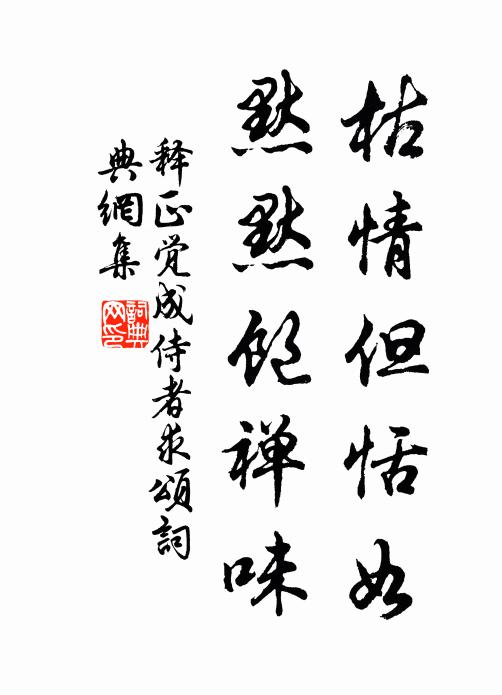 枯情但恬如
默默饱禅味
释正觉成侍者求颂詞
典網集
詞典
网印